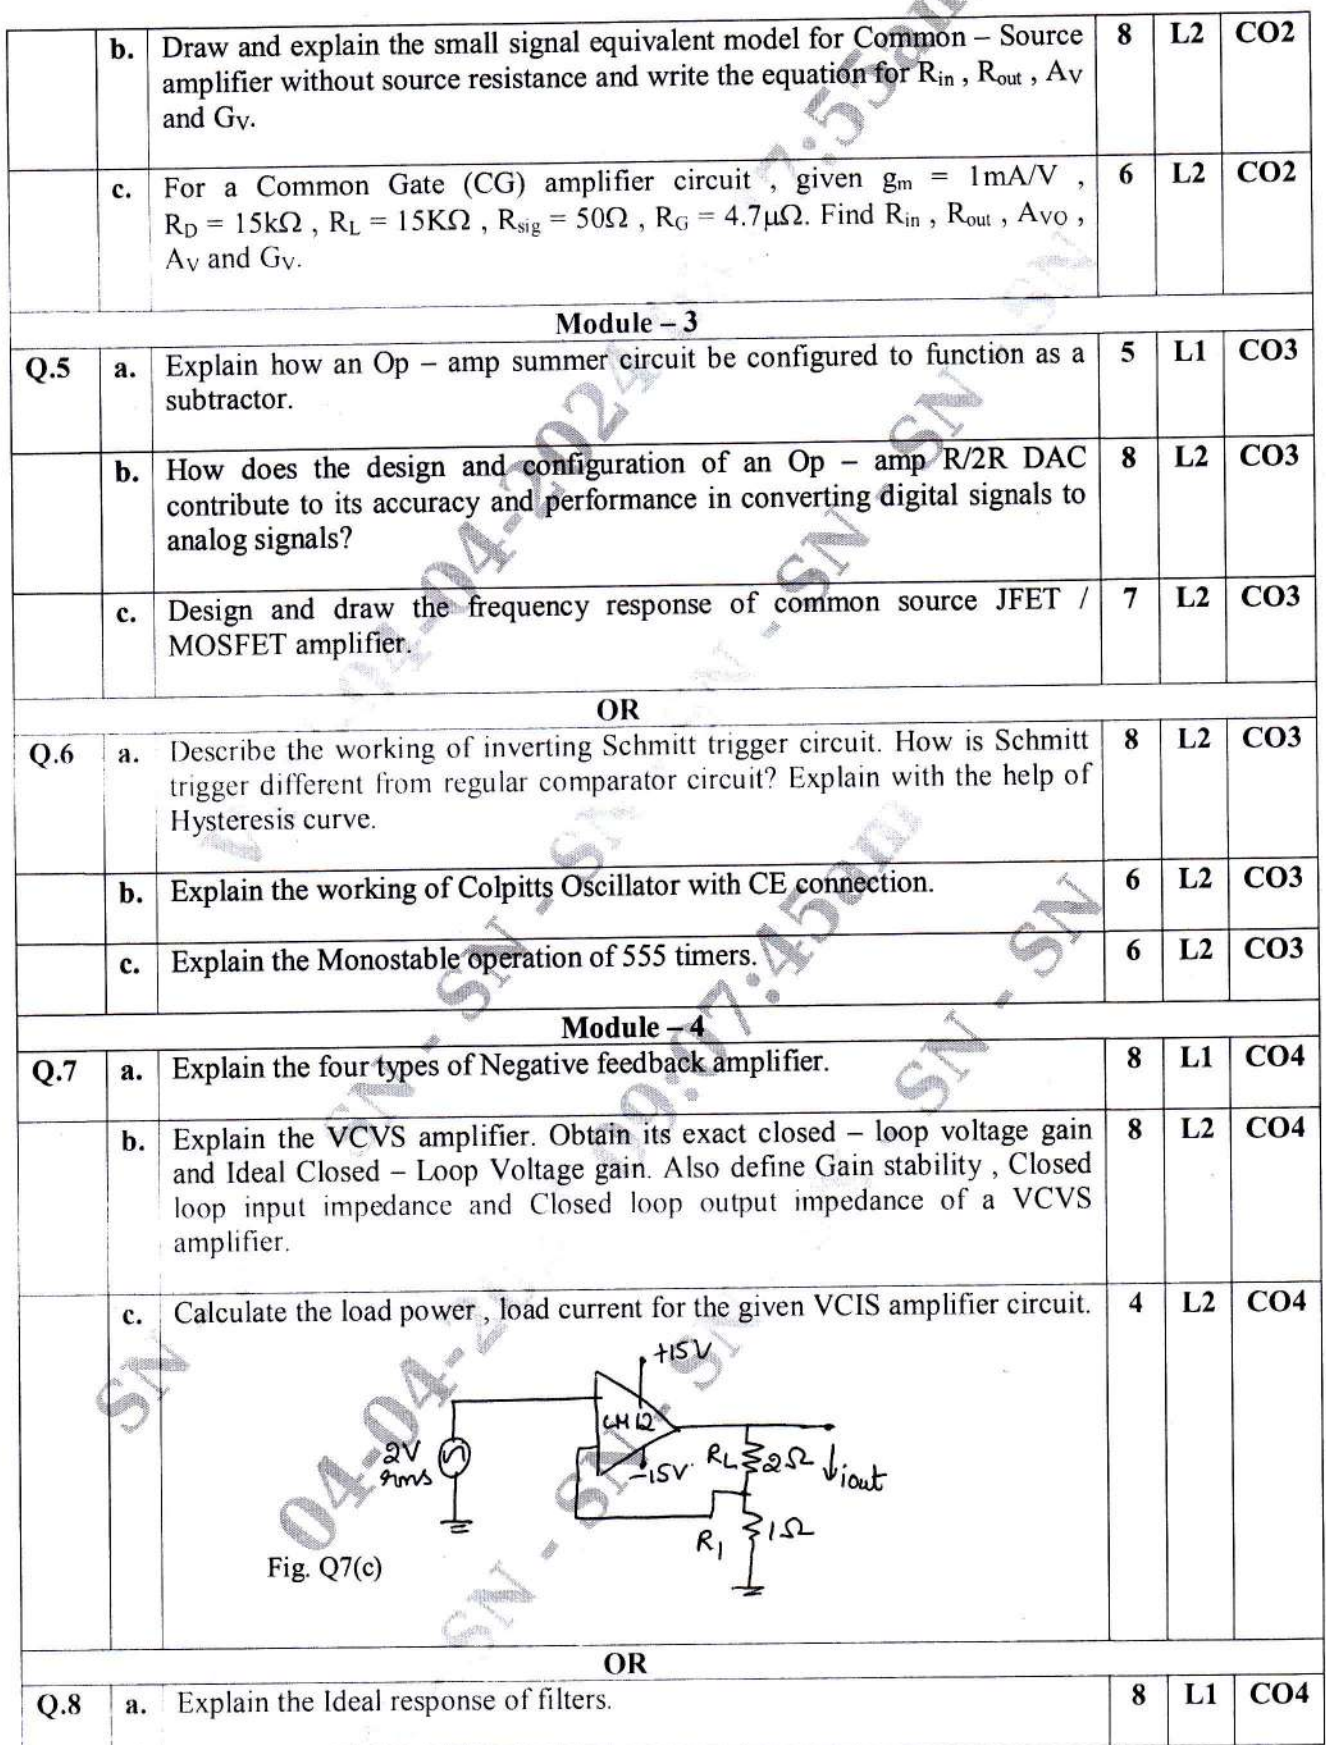 b. Draw and explain the small signal equivalent model for Common – Source 8 L2 CO2
amplifier without source resistance and write the equation for Rin , Rout , AV
and GV.
c. For a Common Gate (CG) amplifier circuit , given gm = 1mA/V , 6 L2 CO2
RD = 15kΩ , RL = 15KΩ , Rsig = 50Ω , RG = 4.7μΩ. Find Rin , Rout , AVO ,
AV and GV.
Module – 3
Q.5 a. Explain how an Op – amp summer circuit be configured to function as a 5 L1 CO3
subtractor.
b. How does the design and configuration of an Op – amp R/2R DAC 8 L2 CO3
contribute to its accuracy and performance in converting digital signals to
analog signals?
c. Design and draw the frequency response of common source JFET / 7 L2 CO3
MOSFET amplifier.
OR
Q.6 a. Describe the working of inverting Schmitt trigger circuit. How is Schmitt 8 L2 CO3
trigger different from regular comparator circuit? Explain with the help of
Hysteresis curve.
b. Explain the working of Colpitts Oscillator with CE connection. 6 L2 CO3
c. Explain the Monostable operation of 555 timers. 6 L2 CO3
Module – 4
Q.7 a. Explain the four types of Negative feedback amplifier. 8 L1 CO4
b. Explain the VCVS amplifier. Obtain its exact closed – loop voltage gain 8 L2 CO4
and Ideal Closed – Loop Voltage gain. Also define Gain stability , Closed
loop input impedance and Closed loop output impedance of a VCVS
amplifier.
c. Calculate the load power , load current for the given VCIS amplifier circuit. 4 L2 CO4
+15V
2V
rms
-15V
RL 2Ω iout
R1 1Ω
Fig. Q7(c)
OR
Q.8 a. Explain the Ideal response of filters. 8 L1 CO4